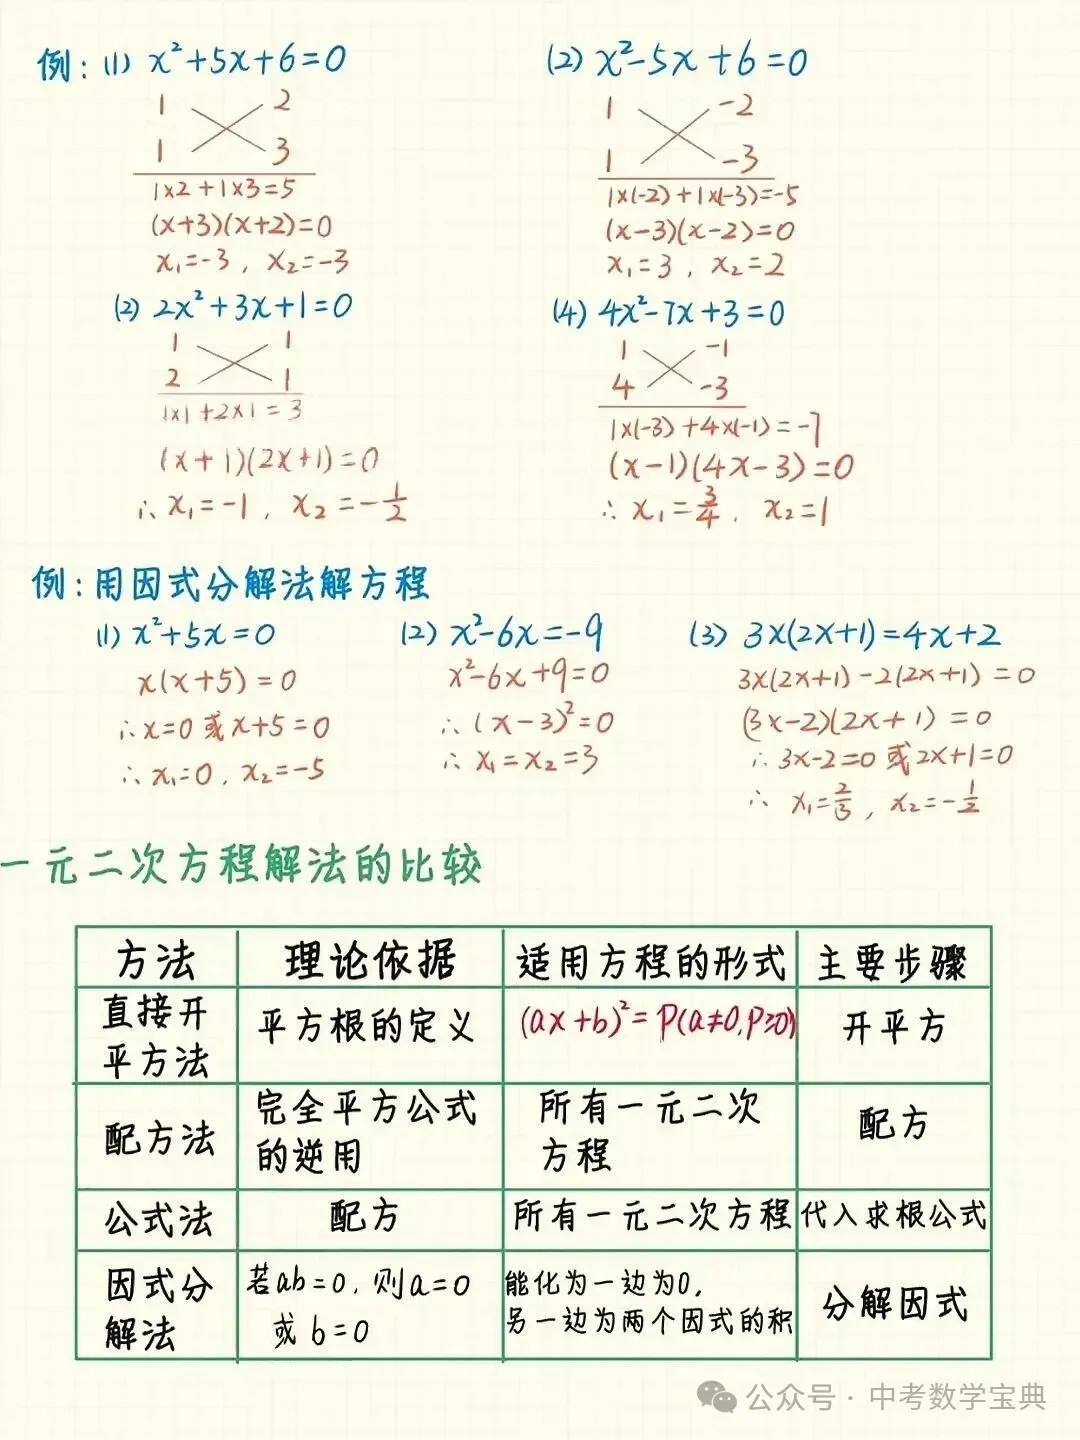 例：(1) x²+5x+6=0
1 2
1 3
1×2+1×3=5
(x+3)(x+2)=0
x₁=-3，x₂=-3
(2) x²-5x+6=0
1 -2
1 -3
1×(-2)+1×(-3)=-5
(x-3)(x-2)=0
x₁=3，x₂=2
(2) 2x²+3x+1=0
1 1
2 1
1×1+2×1=3
(x+1)(2x+1)=0
∴x₁=-1，x₂=-1/2
(4) 4x²-7x+3=0
1 -1
4 -3
1×(-3)+4×(-1)=-7
(x-1)(4x-3)=0
∴x₁=3/4，x₂=1
例：用因式分解法解方程
(1) x²+5x=0
x(x+5)=0
∴x=0或x+5=0
∴x₁=0，x₂=-5
(2) x²-6x=-9
x²-6x+9=0
∴(x-3)²=0
∴x₁=x₂=3
(3) 3x(2x+1)=4x+2
3x(2x+1)-2(2x+1)=0
(3x-2)(2x+1)=0
∴3x-2=0或2x+1=0
∴x₁=2/3，x₂=-1/2
一元二次方程解法的比较
方法 理论依据 适用方程的形式 主要步骤
直接开
平方法
平方根的定义
(ax+b)²=P(a≠0,P≥0)
开平方
配方法
完全平方公式
的逆用
所有一元二次
方程
配方
公式法 配方 所有一元二次方程 代入求根公式
因式分
解法
若ab=0，则a=0
或b=0
能化为一边为0，
另一边为两个因式的积
分解因式
公众号·中考数学宝典